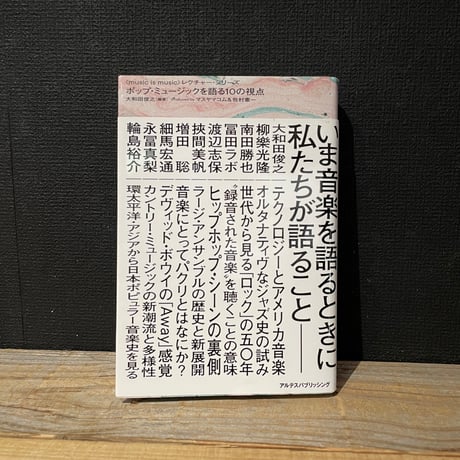 〈music is music〉レクチャー・シリーズ
ポップ・ミュージックを語る10の視点
大和田俊之〔編著〕 produced by マスヤマコム&牧村憲一
いま音楽を語るときに
私たちが語ること——
大和田俊之 テクノロジーとアメリカ音楽
柳樂光隆 オルタナティヴなジャズ史の試み
南田勝也 世代から見る「ロック」の五〇年
冨田ラボ “録音された音楽”を聴くことの意味
渡辺志保 ヒップホップ・シーンの裏側
挾間美帆 ラージ・アンサンブルの歴史と新展開
増田 聡 音楽にとってパクリとはなにか?
細馬宏通 デヴィッド・ボウイの「Away」感覚
永冨真梨 カントリー・ミュージックの新潮流と多様性
輪島裕介 環太平洋・アジアから日本ポピュラー音楽史を見る
アルテスパブリッシング